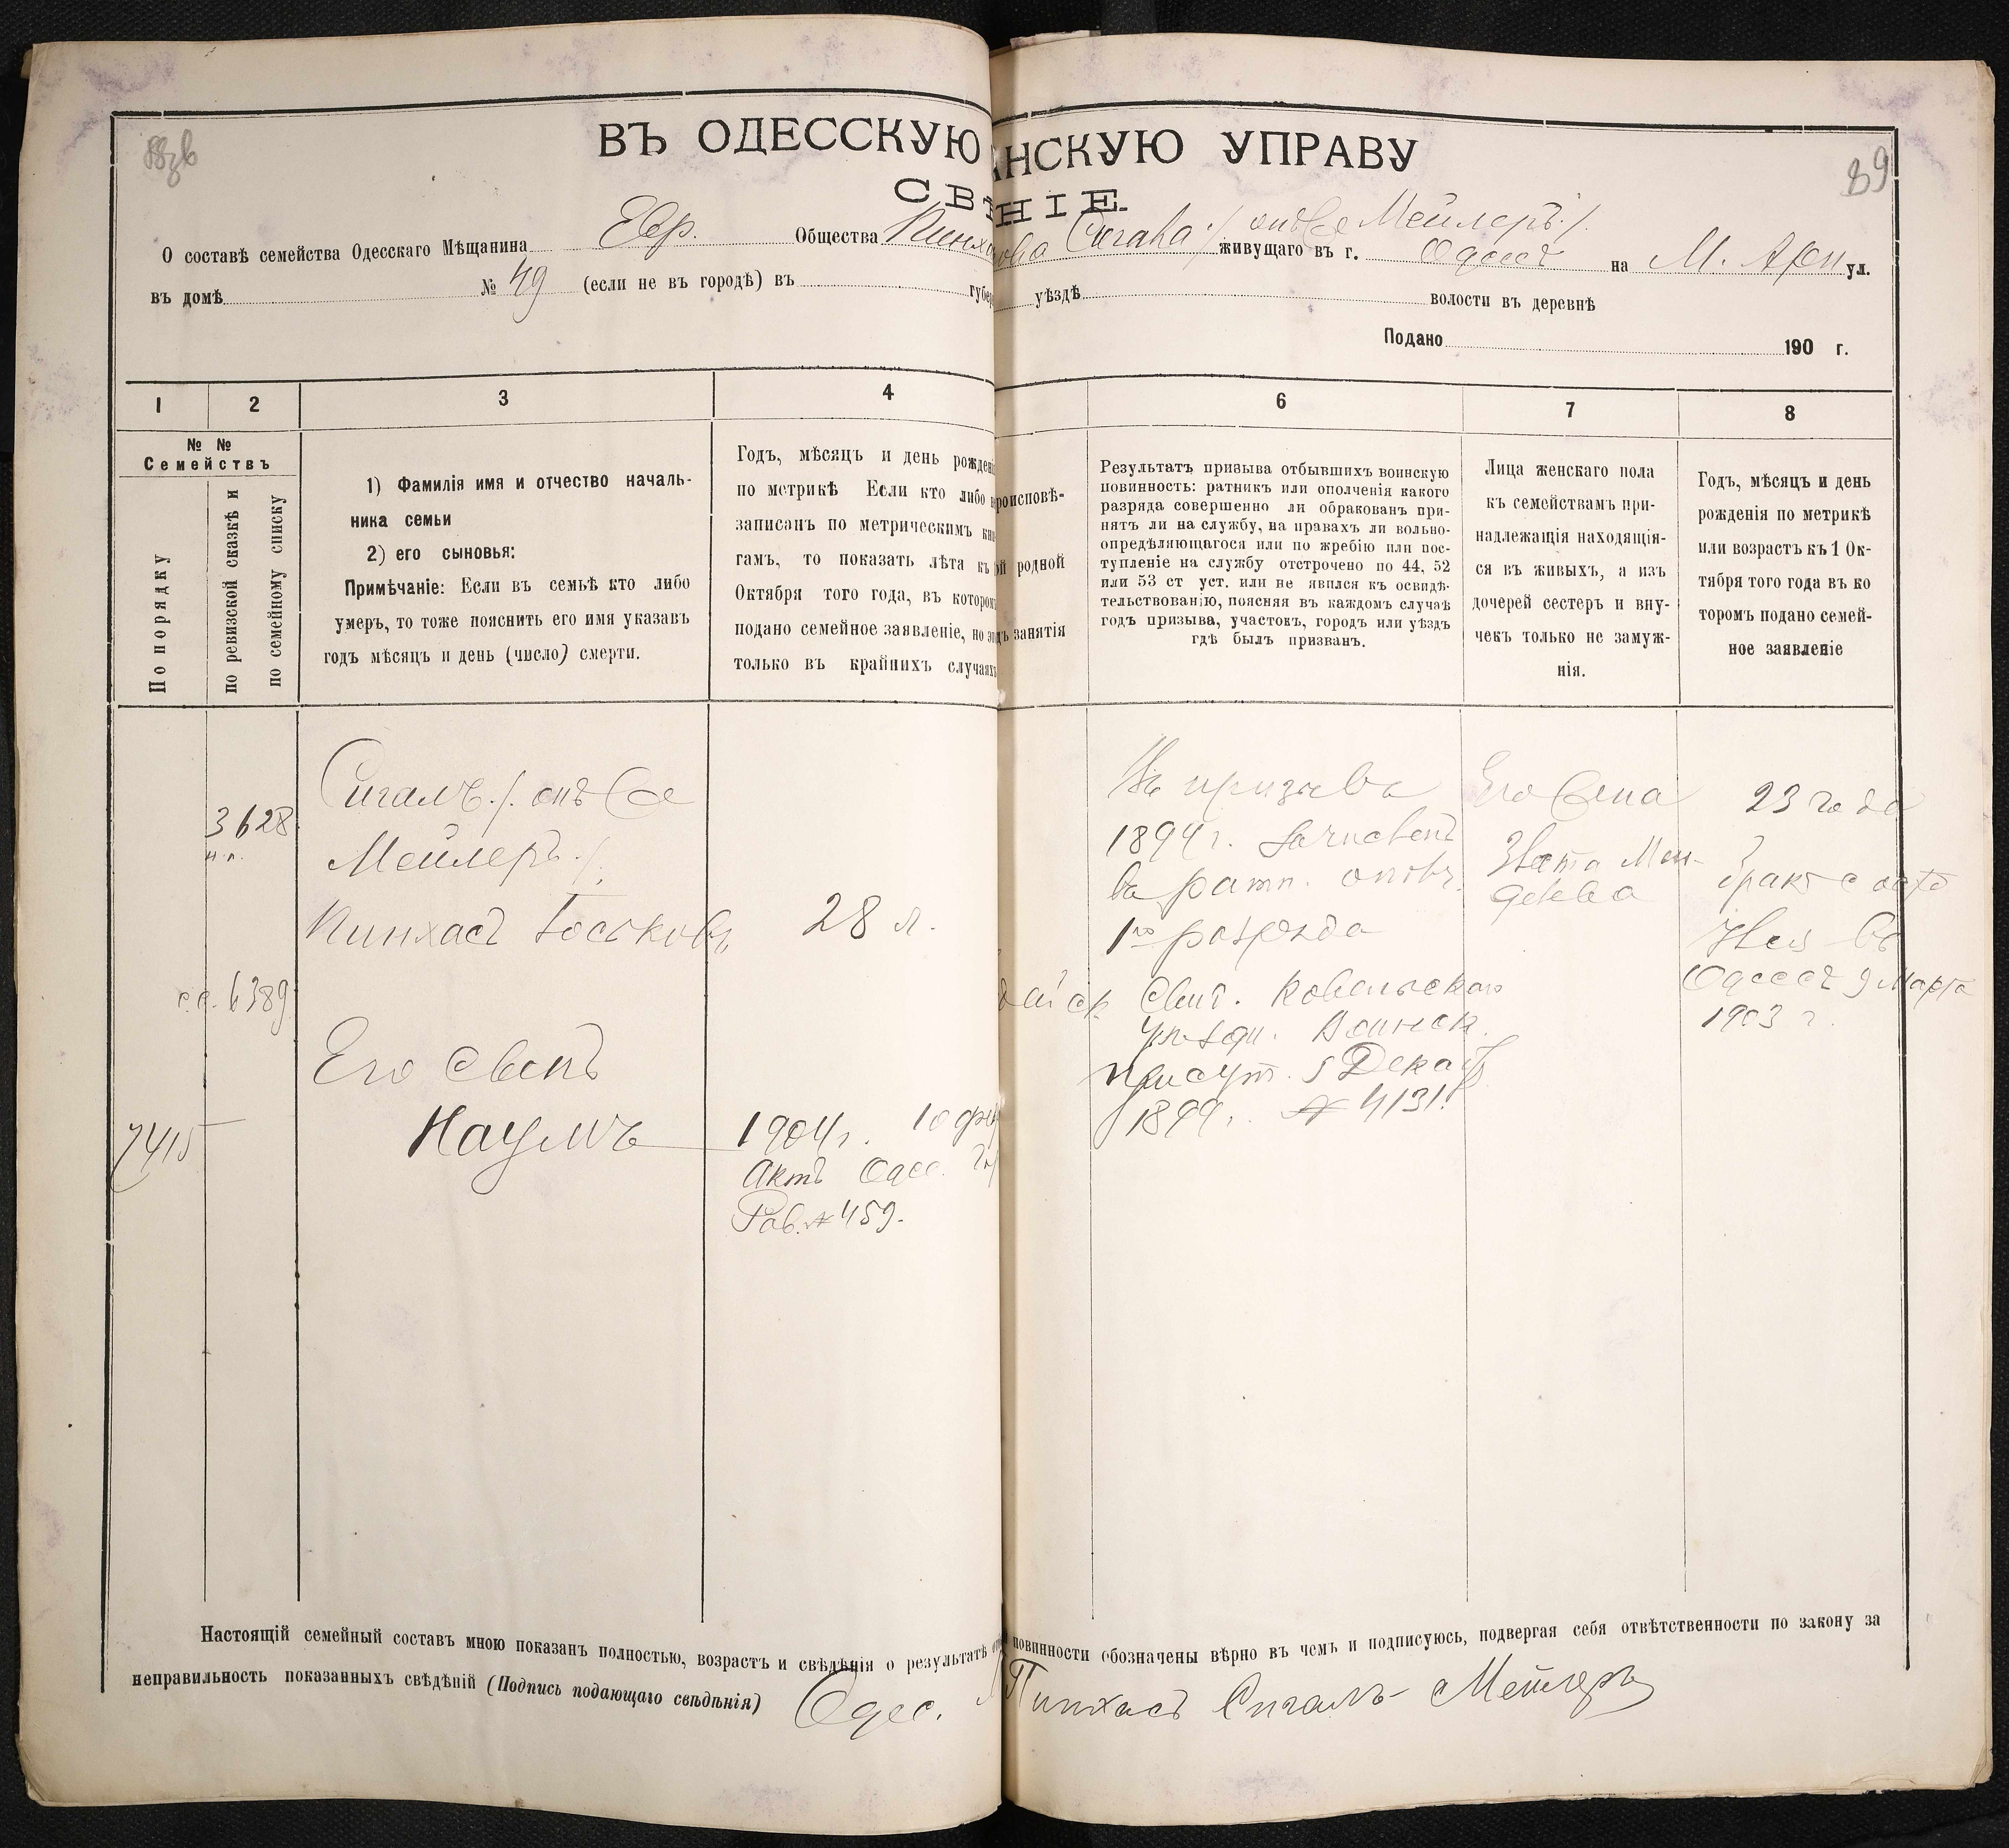 ВЪ ОДЕССКУЮ АНСКУЮ УПРАВУ
СВѢ НІЕ.
89
О составѣ семейства Одесскаго Мѣщанина Евр. Общества Пинхасова Сигала /. онъ же Мейлеръ ./. живущаго въ г. Одессѣ на М. Арн ул.
въ домѣ № 49 (если не въ городѣ) въ губер уѣздѣ волости въ деревнѣ
Подано 190 г.
1 2 3 4 6 7 8
№ №
Семействъ
По порядку
по ревизской сказкѣ и
по семейному списку
1) Фамилія имя и отчество началь-
ника семьи
2) его сыновья:
Примѣчаніе: Если въ семьѣ кто либо
умеръ, то тоже пояснить его имя указавъ
годъ мѣсяцъ и день (число) смерти.
Годъ, мѣсяцъ и день рождені
по метрикѣ Если кто либо н
записанъ по метрическимъ кни
гамъ, то показать лѣта къ
Октября того года, въ котором
подано семейное заявленіе, но э
только въ крайнихъ случаяхъ
роисповѣ-
ой родной
дъ занятія
Результатъ призыва отбывшихъ воинскую
повинность: ратникъ или ополченія какого
разряда совершенно ли обракованъ при-
нятъ ли на службу, на правахъ ли вольно-
опредѣляющагося или по жребію или пос-
тупленіе на службу отстрочено по 44, 52
или 53 ст уст. или не явился къ освидѣ-
тельствованію, поясняя въ каждомъ случаѣ
годъ призыва, участокъ, городъ или уѣздъ
гдѣ былъ призванъ.
Лица женскаго пола
къ семействамъ при-
надлежащія находящія-
ся въ живыхъ, а изъ
дочерей сестеръ и вну-
чекъ только не замуж-
нія.
Годъ, мѣсяцъ и день
рожденія по метрикѣ
или возрастъ къ 1 Ок-
тября того года въ ко
торомъ подано семей-
ное заявленіе
3628
н.п.
с.с. 6389
7415
Сигалъ ./. онъ же
Мейлеръ ./.
Пинхасъ Іоськовъ
Его сынъ
Наумъ
28 л.
1904 г. 10 фев
Актъ Одес. Го
Рав. № 459.
Въ призывъ
1894 г. Зачисленъ
въ ратн. ополч.
1го разряда
Свид. Ковельскаго
уѣздн. Воинск.
присут. 5 Декаб
1894 г. № 4131.
Его жена
Злата Мен-
делева
23 года
Бракъ с
въ
Одессѣ 9 Марта
1903 г.
Настоящій семейный составъ мною показанъ полностью, возрастъ и свѣдѣнія о результатѣ повинности обозначены вѣрно въ чемъ и подписуюсь, подвергая себя отвѣтственности по закону за
неправильность показанныхъ свѣдѣній (Подпись подающаго свѣдѣнія) Одес. Пинхасъ Сигалъ-Мейлеръ